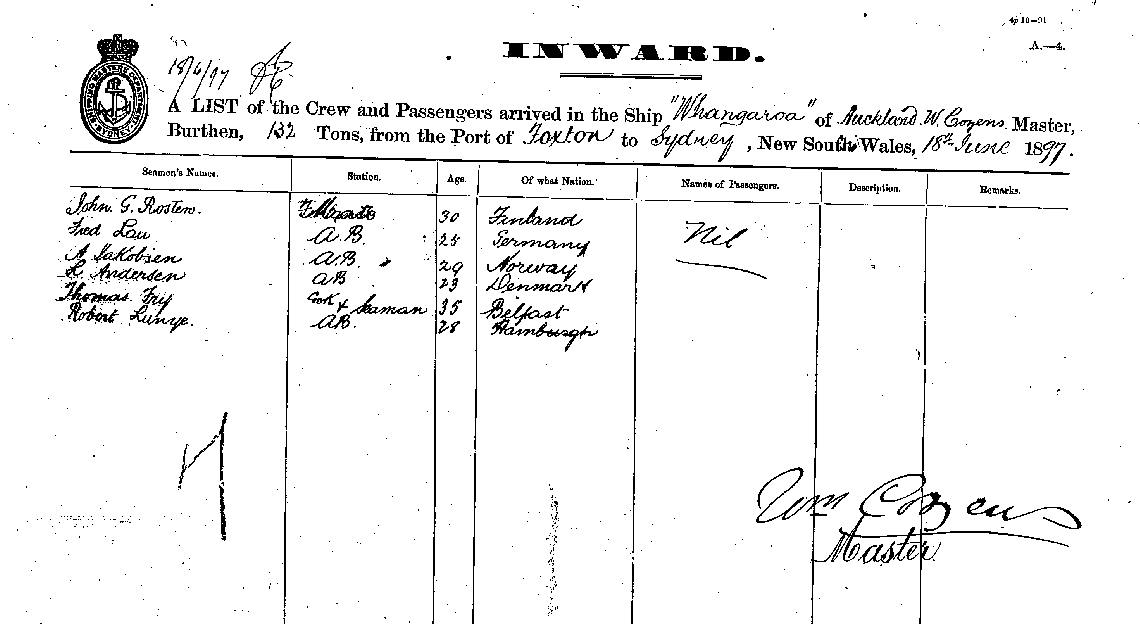 4p 10—91
A.—4.
INWARD.
18/6/97
A LIST of the Crew and Passengers arrived in the Ship "Whangaroa" of Auckland W. Cozens Master,
Burthen, 132 Tons, from the Port of Foxton to Sydney, New South Wales, 18th June 1897.
Seamen's Names. Station. Age. Of what Nation. Names of Passengers. Description. Remarks.
John. G. Rosten. 30 Finland Nil
Fred Lau A.B. 25 Germany
A. Jakobsen A.B. 29 Norway
L. Andersen AB 23 Denmark
Thomas Fry Cook & Seaman 35 Belfast
Robert Lunye. AB. 28 Hamburgh
7
Wm Cozens
Master